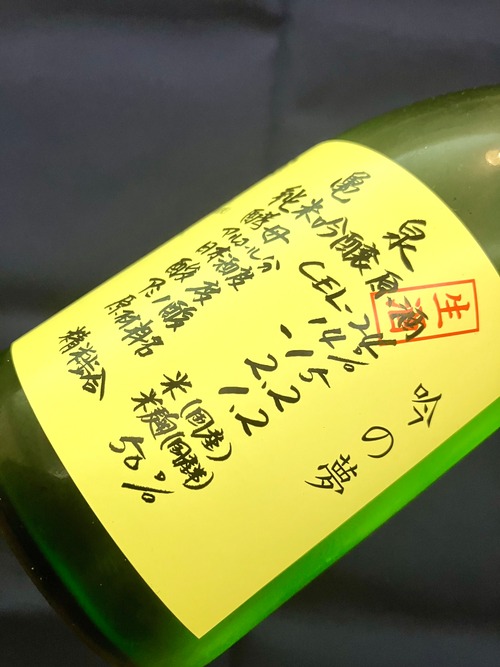 亀泉
純米吟醸原酒
生酒
酵母 CEL-24
アルコール分 14%
日本酒度 -15
酸度 2.2
アミノ酸 1.2
原材料名 米(国産)
米麹(国産米)
精米歩合 50%
吟の夢